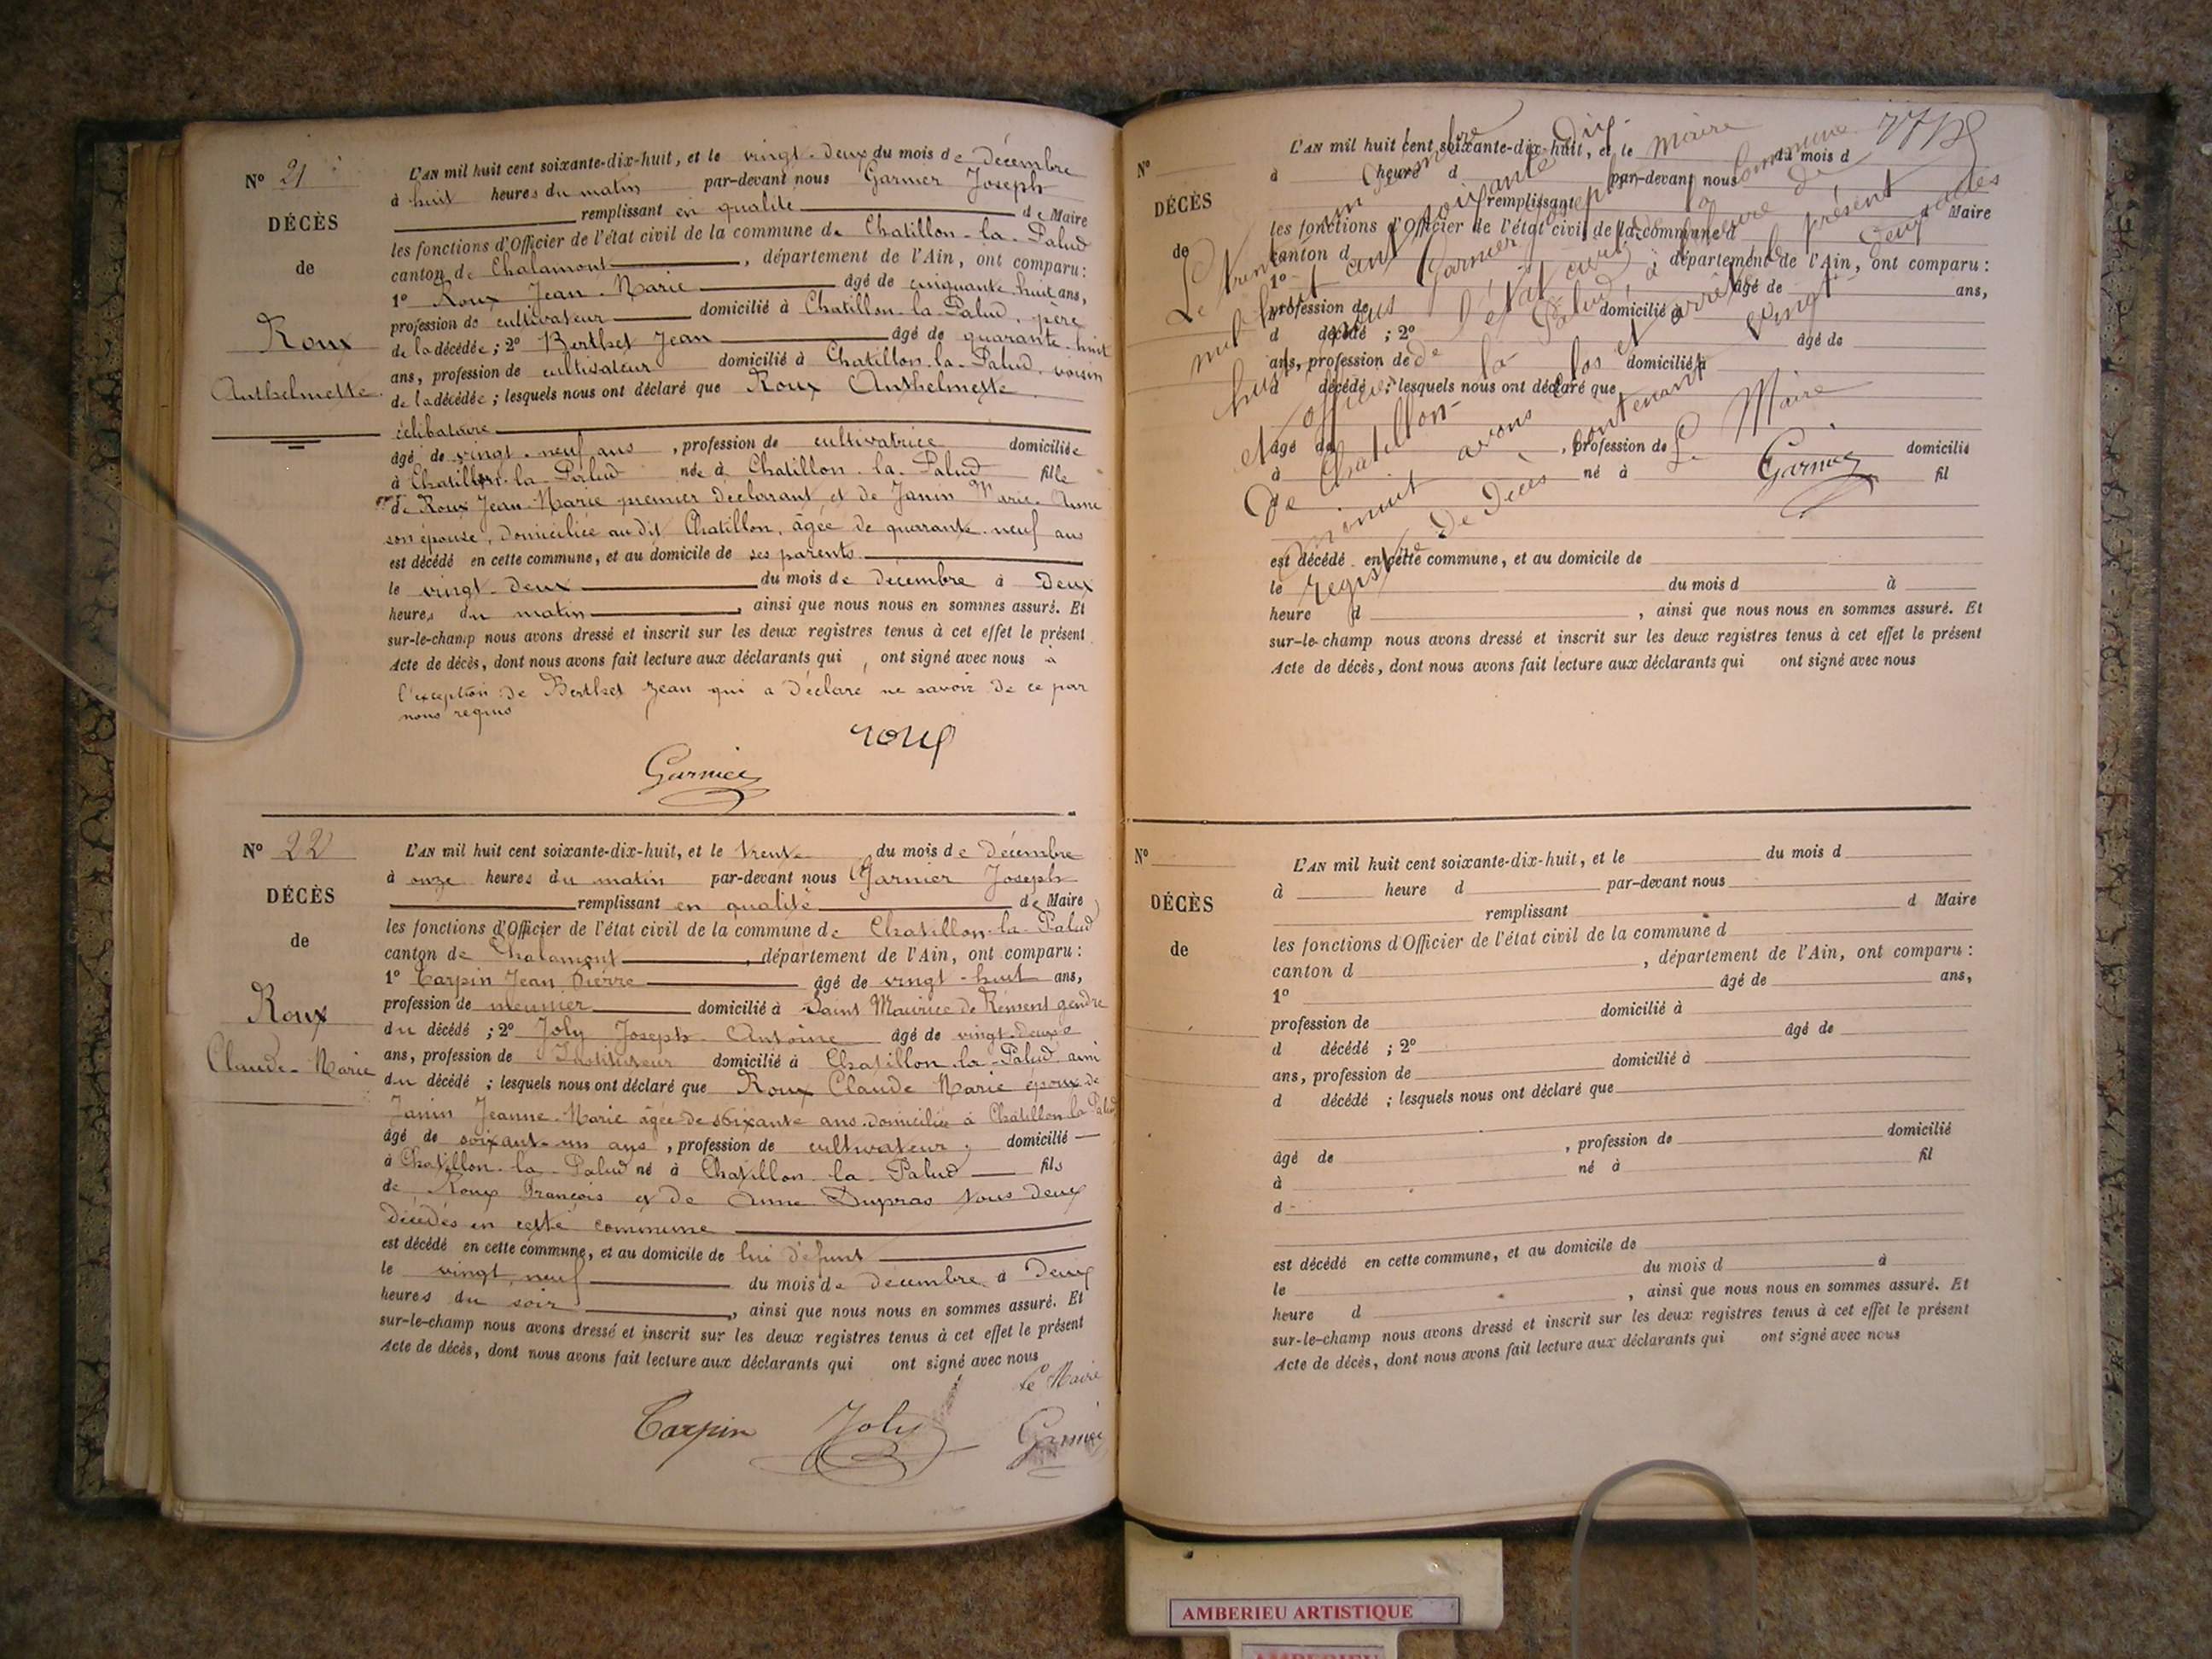 N° 21
DÉCÈS
de
Roux
Anthelmette
L'AN mil huit cent soixante-dix-huit, et le vingt-deux du mois de décembre
à huit heures du matin par-devant nous Garnier Joseph
remplissant en qualité de Maire
les fonctions d'Officier de l'état civil de la commune de Chatillon-la-Palud
canton de Chalamont, département de l'Ain, ont comparu:
1° Roux Jean-Marie âgé de cinquante-huit ans,
profession de cultivateur domicilié à Chatillon-la-Palud, père
de la décédée; 2° Berthet Jean âgé de quarante-huit
ans, profession de cultivateur domicilié à Chatillon-la-Palud, voisin
de la décédée; lesquels nous ont déclaré que Roux Anthelmette
célibataire
âgé de vingt-neuf ans, profession de cultivatrice domiciliée
à Chatillon-la-Palud née à Chatillon-la-Palud fille
de Roux Jean-Marie premier déclarant et de Janin Marie-Anne
son épouse, domiciliée au dit Chatillon, âgée de quarante-neuf ans
est décédé en cette commune, et au domicile de ses parents
le vingt-deux du mois de décembre à deux
heures du matin, ainsi que nous nous en sommes assuré. Et
sur-le-champ nous avons dressé et inscrit sur les deux registres tenus à cet effet le présent
Acte de décès, dont nous avons fait lecture aux déclarants qui, ont signé avec nous à
l'exception de Berthet Jean qui a déclaré ne savoir de ce par
nous requis
roux
Garnier
N° 22
DÉCÈS
de
Roux
Claude-Marie
L'AN mil huit cent soixante-dix-huit, et le trente du mois de décembre
à onze heures du matin par-devant nous Garnier Joseph
remplissant en qualité de Maire
les fonctions d'Officier de l'état civil de la commune de Chatillon-la-Palud
canton de Chalamont, département de l'Ain, ont comparu:
1° Carpin Jean Pierre âgé de vingt-huit ans,
profession de meunier domicilié à Saint Maurice de Rémens gendre
du décédé; 2° Joly Joseph Antoine âgé de vingt-deux
ans, profession de Instituteur domicilié à Chatillon-la-Palud ami
du décédé; lesquels nous ont déclaré que Roux Claude Marie époux de
Janin Jeanne-Marie âgée de soixante ans domiciliée à Chatillon la Palud
âgé de soixante-un ans, profession de cultivateur, domicilié
à Chatillon-la-Palud né à Chatillon-la-Palud fils
de Roux François et de Anne Dupras tous deux
décédés en cette commune
est décédé en cette commune, et au domicile de lui défunt
le vingt-neuf du mois de decembre à deux
heures du soir, ainsi que nous nous en sommes assuré. Et
sur-le-champ nous avons dressé et inscrit sur les deux registres tenus à cet effet le présent
Acte de décès, dont nous avons fait lecture aux déclarants qui ont signé avec nous
Le Maire
Carpin Joly Garnier
N°
DÉCÈS
de
L'AN mil huit cent soixante-dix-huit, et le du mois d
à heure d par-devant nous
remplissant d Maire
les fonctions d'Officier de l'état civil de la commune d
canton d, département de l'Ain, ont comparu:
1° âgé de ans,
profession de domicilié à
d décédé; 2° âgé de
ans, profession de domicilié à
d décédé; lesquels nous ont déclaré que
âgé de, profession de domicilié
à né à fil
d
est décédé en cette commune, et au domicile de
le du mois d à
heure d, ainsi que nous nous en sommes assuré. Et
sur-le-champ nous avons dressé et inscrit sur les deux registres tenus à cet effet le présent
Acte de décès, dont nous avons fait lecture aux déclarants qui ont signé avec nous
Le trente un décembre
mil huit cent soixante dix-
huit nous Garnier Joseph Maire
et officier de l'état civil de la commune
de Chatillon-la-Palud, à l'heure de
minuit avons clos et arrêté le présent
registre de décès contenant vingt deux actes
Le Maire
Garnier
N°
DÉCÈS
de
L'AN mil huit cent soixante-dix-huit, et le du mois d
à heure d par-devant nous
remplissant d Maire
les fonctions d'Officier de l'état civil de la commune d
canton d, département de l'Ain, ont comparu:
1° âgé de ans,
profession de domicilié à
d décédé; 2° âgé de
ans, profession de domicilié à
d décédé; lesquels nous ont déclaré que
âgé de, profession de domicilié
à né à fil
d
est décédé en cette commune, et au domicile de
le du mois d à
heure d, ainsi que nous nous en sommes assuré. Et
sur-le-champ nous avons dressé et inscrit sur les deux registres tenus à cet effet le présent
Acte de décès, dont nous avons fait lecture aux déclarants qui ont signé avec nous
AMBERIEU ARTISTIQUE
AMBERIEU